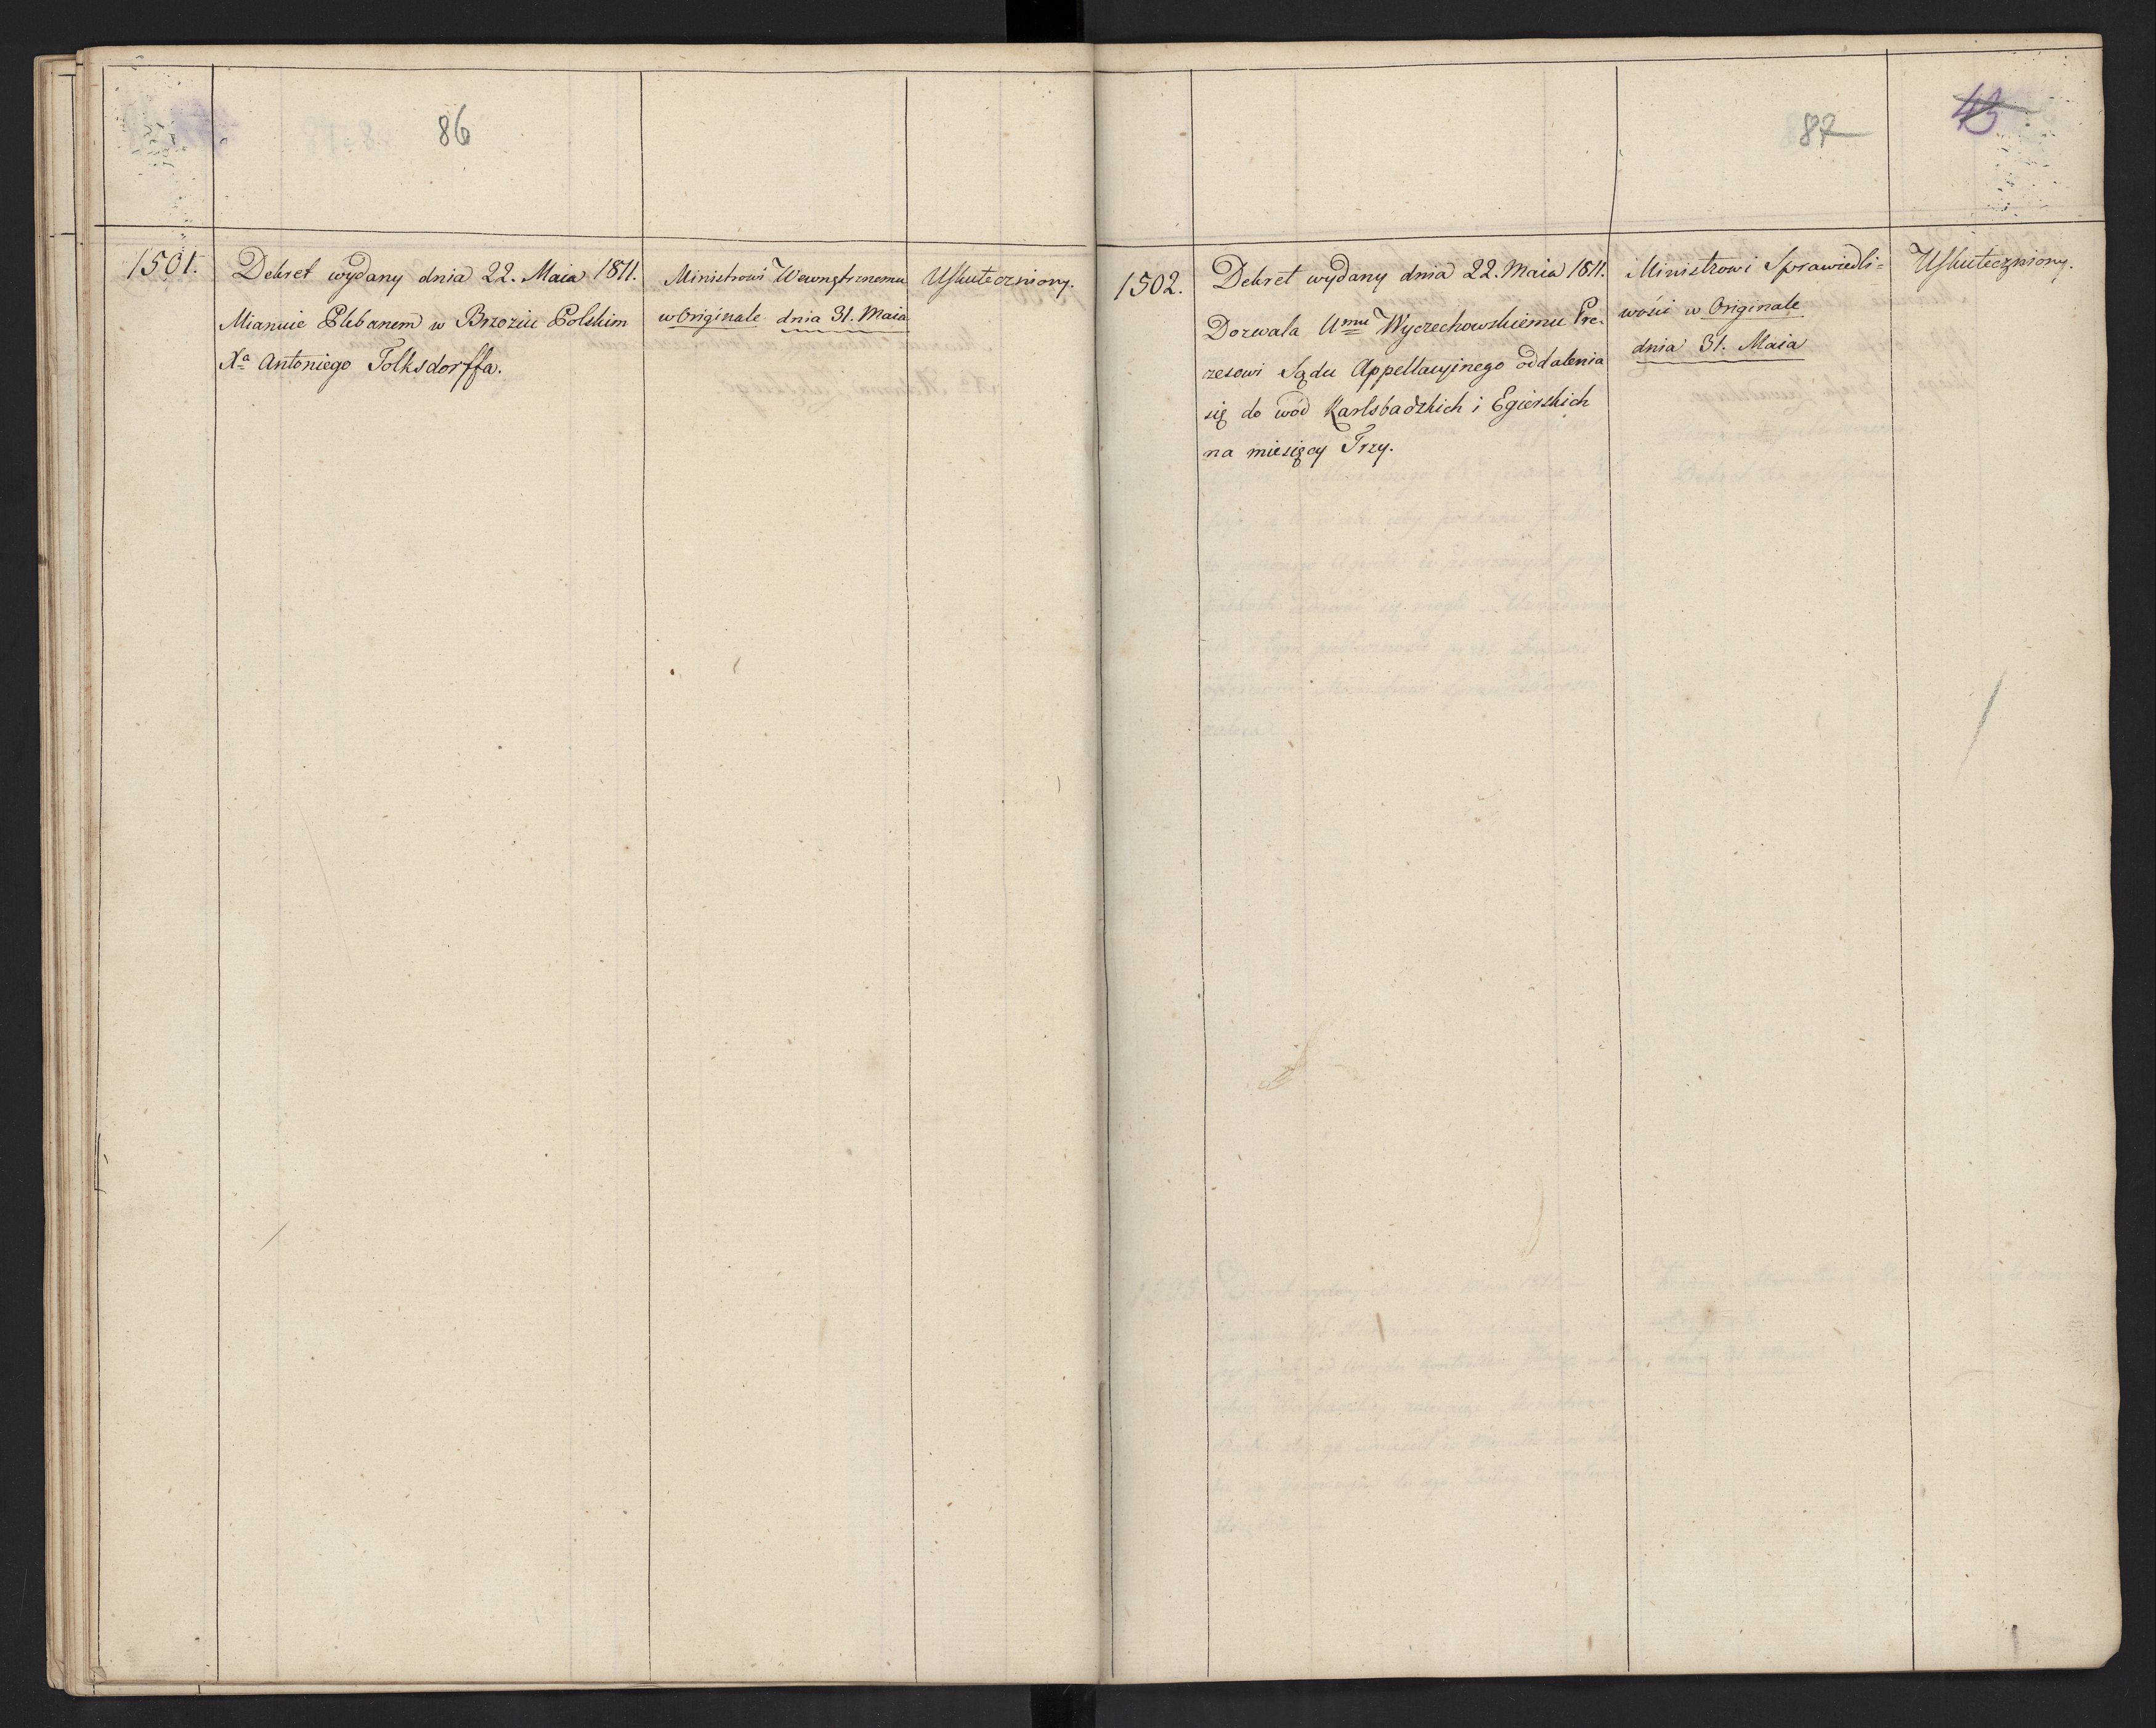 86
1501.
Dekret wydany dnia 22. Maia 1811.
Mianuie Plebanem w Brzoziu Polskim
Xa Antoniego Tolksdorffa.
Ministrowi Wewnętrznemu
w Originale dnia 31. Maia
Uskuteczniony.
87
43
1502.
Dekret wydany dnia 22. Maia 1811.
Dozwala Umu Wyczechowskiemu Pre-
zesowi Sądu Appellacyinego oddalenia
się do wód Karlsbadzkich i Egierskich
na miesięcy Trzy.
Ministrowi Sprawiedli=
wości w Originale
dnia 31. Maia
Uskuteczniony.